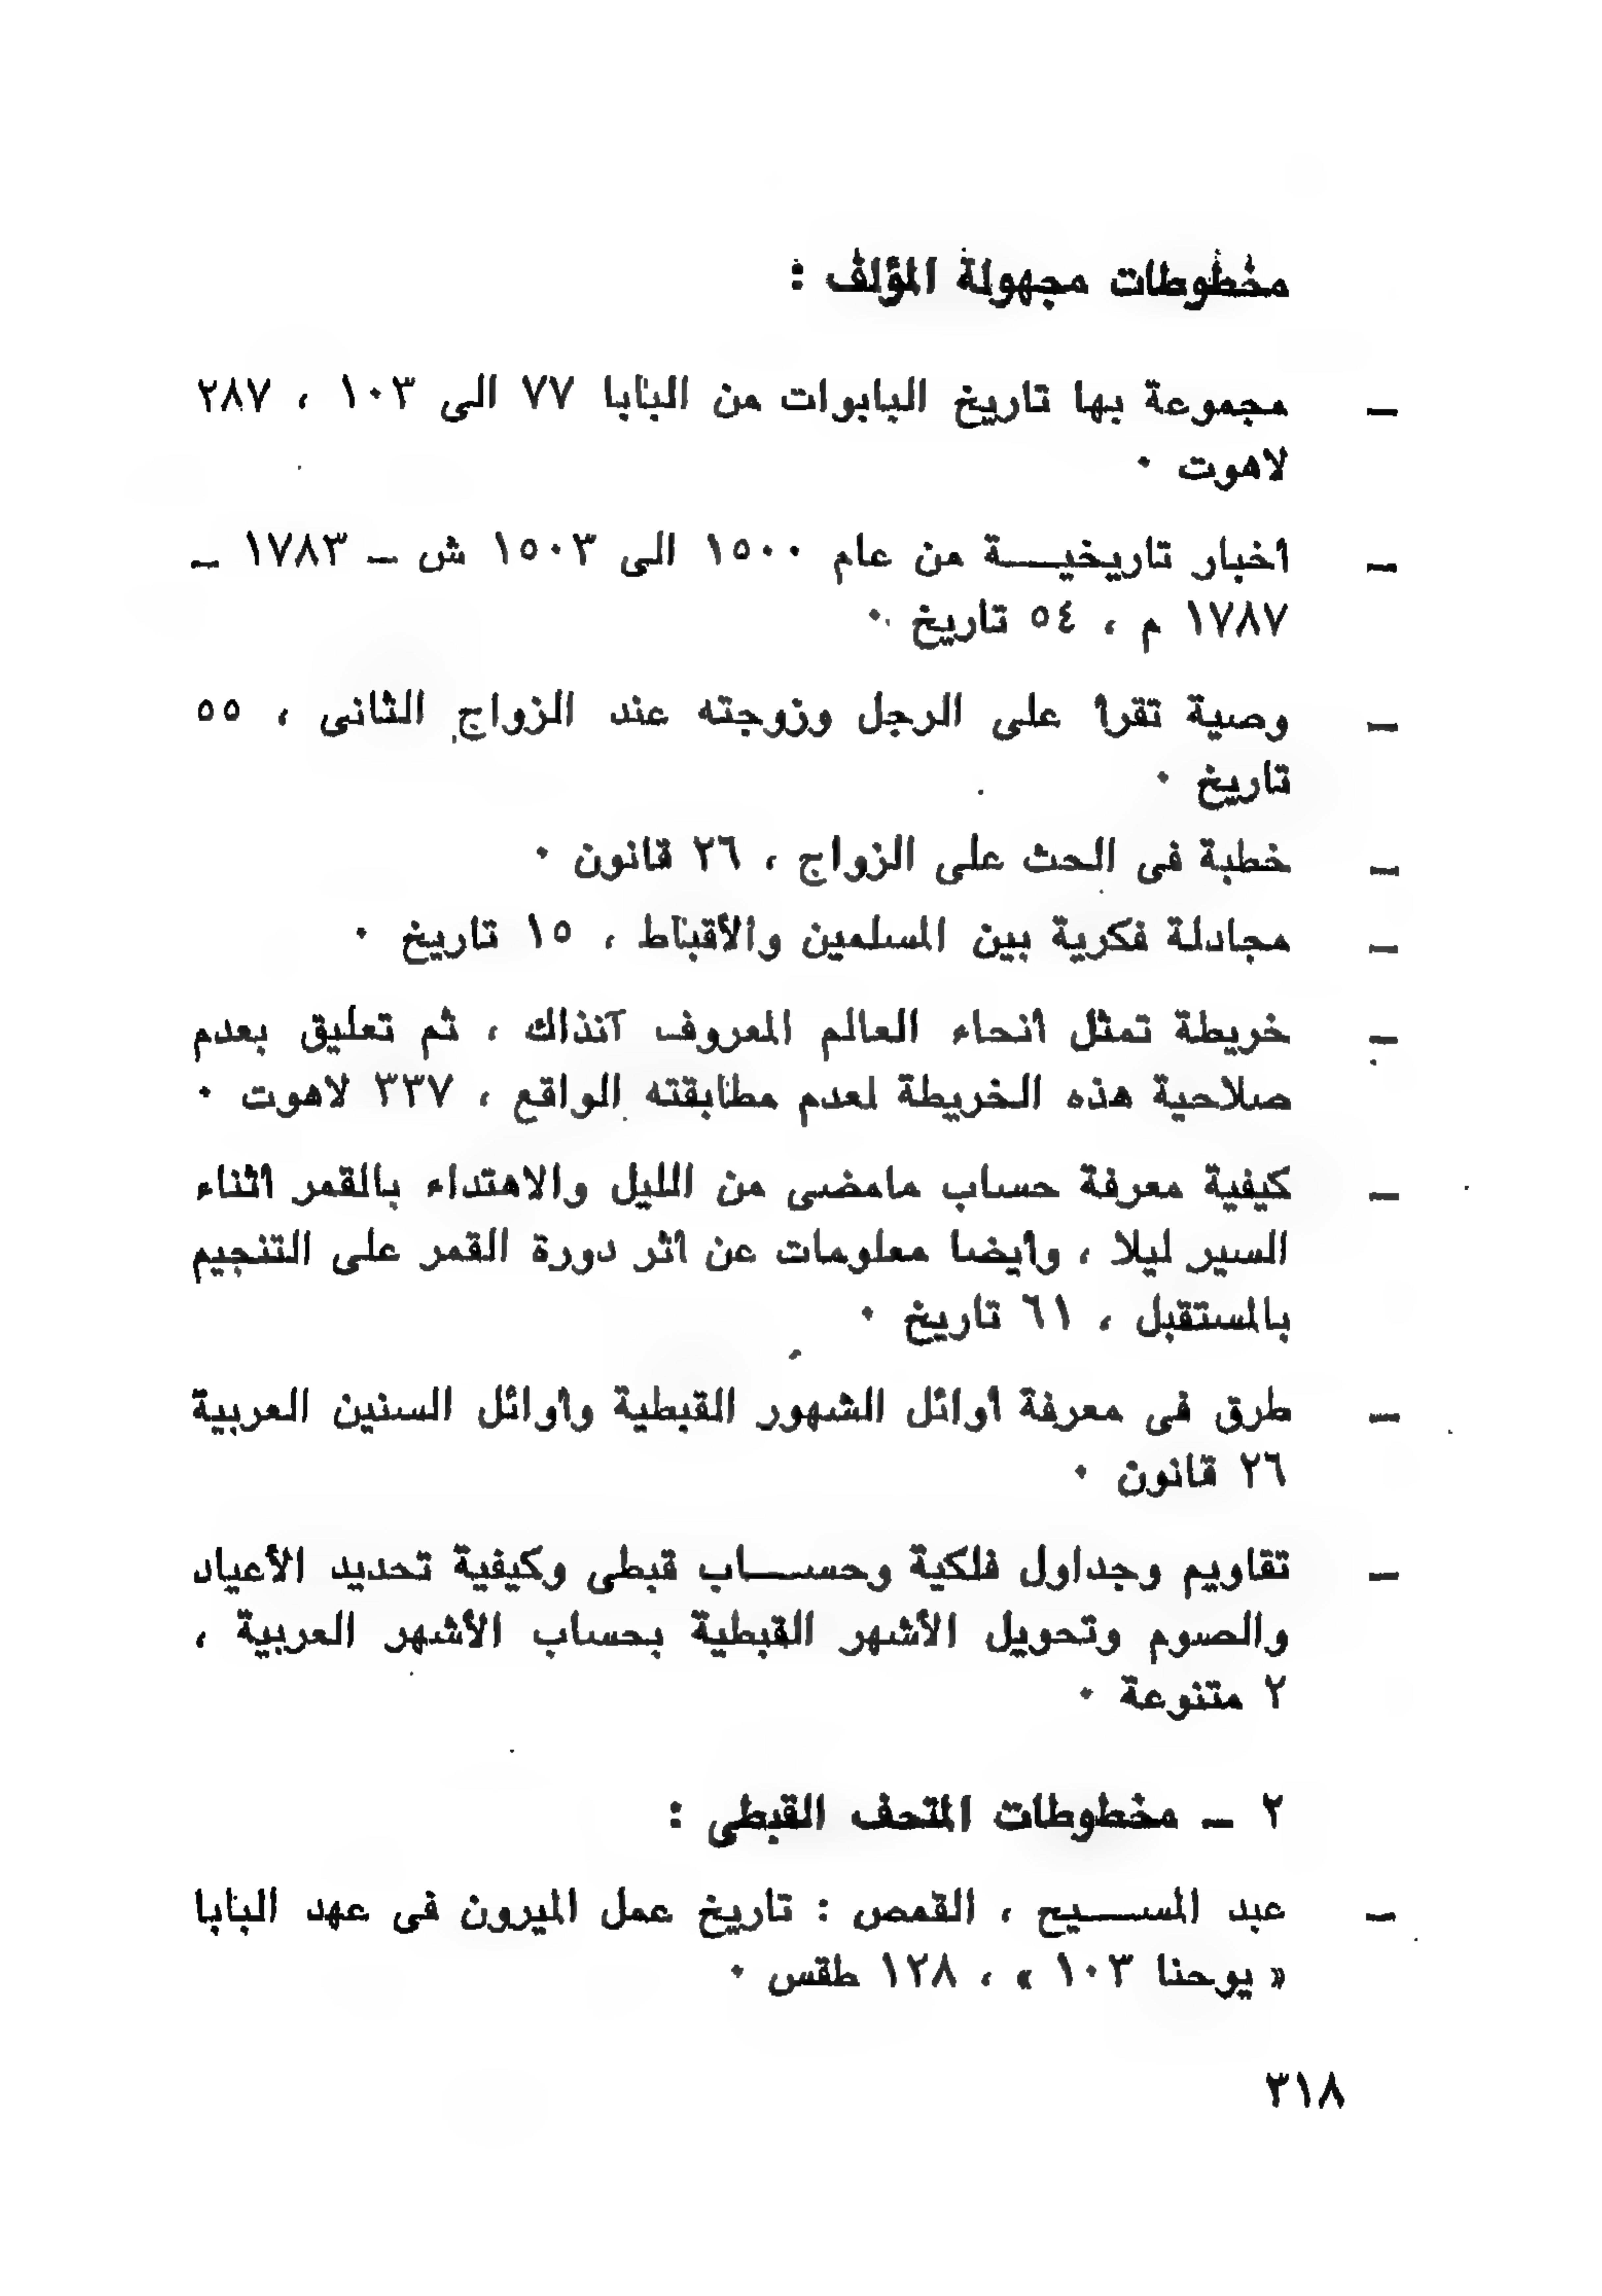 مخطوطات مجهولة المؤلف :
– مجموعة بها تاريخ البابوات من البابا ٧٧ الى ١٠٣ ، ٢٨٧
لاهوت ٠
– أخبار تاريخيـــة من عام ١٥٠٠ الى ١٥٠٣ ش – ١٧٨٣ –
١٧٨٧ م ، ٥٤ تاريخ ٠
– وصية تقرأ على الرجل وزوجته عند الزواج الثانى ، ٥٥
تاريخ ٠
– خطبة فى الحث على الزواج ، ٢٦ قانون ٠
– مجادلة فكرية بين المسلمين والأقباط ، ١٥ تاريخ ٠
– خريطة تمثل أنحاء العالم المعروف آنذاك ، ثم تعليق بعدم
صلاحية هذه الخريطة لعدم مطابقته الواقع ، ٣٣٧ لاهوت ٠
– كيفية معرفة حساب مامضى من الليل والاهتداء بالقمر أثناء
السير ليلا ، وأيضا معلومات عن أثر دورة القمر على التنجيم
بالمستقبل ، ٦١ تاريخ ٠
– طرق فى معرفة أوائل الشهور القبطية وأوائل السنين العربية
٢٦ قانون ٠
– تقاويم وجداول فلكية وحســـاب قبطى وكيفية تحديد الأعياد
والصوم وتحويل الأشهر القبطية بحساب الأشهر العربية ،
٢ متنوعة ٠
٢ – مخطوطات المتحف القبطى :
– عبد المســـيح ، القمص : تاريخ عمل الميرون فى عهد البابا
« يوحنا ١٠٣ » ، ١٢٨ طقس ٠
٣١٨